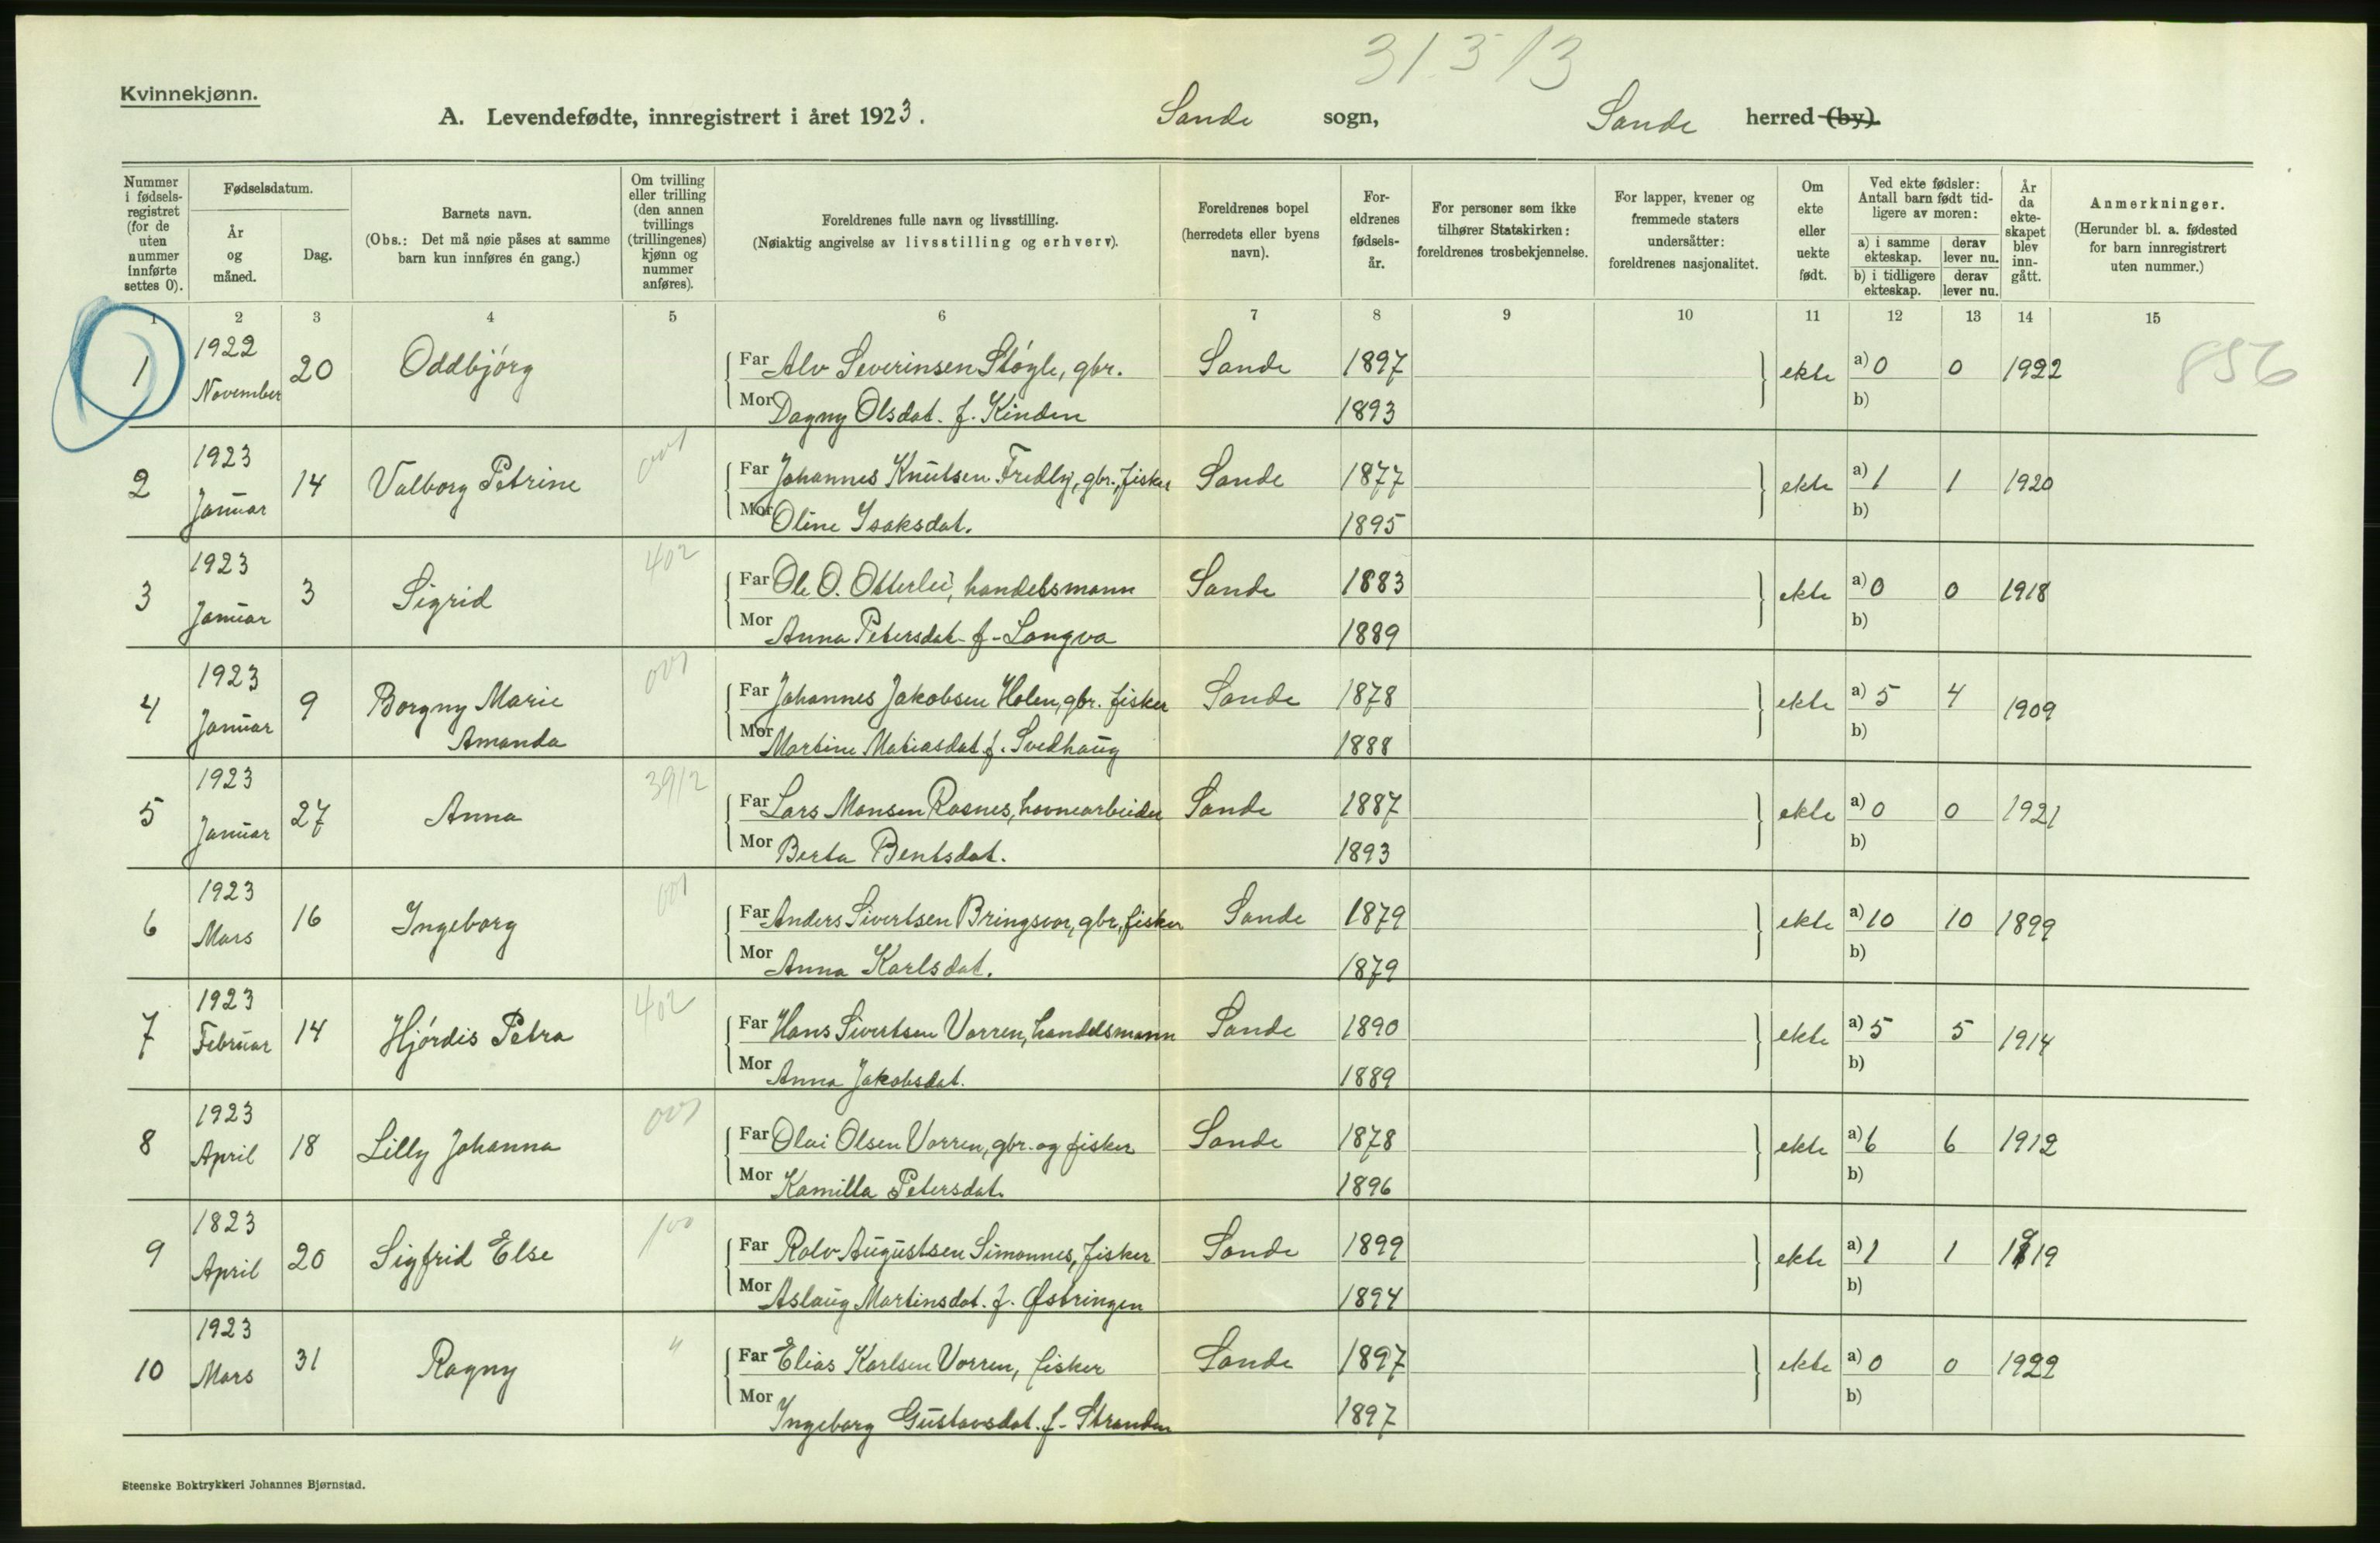 31.513
Kvinnekjønn.
A. Levendefødte, innregistrert i året 1923. Sande sogn, Sande herred (by).
Nummer i fødsels-registret (for de uten nummer innførte settes 0).
Fødselsdatum.
År og måned.
Dag.
Barnets navn.
(Obs.: Det må nøie påses at samme barn kun innføres én gang.)
Om tvilling eller trilling (den annen tvillings (trillingenes) kjønn og nummer anføres).
Foreldrenes fulle navn og livsstilling.
(Nøiaktig angivelse av livsstilling og erhverv).
Foreldrenes bopel (herredets eller byens navn).
For-eldrenes fødsels-år.
For personer som ikke tilhører Statskirken: foreldrenes trosbekjennelse.
For lapper, kvener og fremmede staters undersåtter: foreldrenes nasjonalitet.
Om ekte eller uekte født.
Ved ekte fødsler: Antall barn født tid-ligere av moren:
a) i samme ekteskap. derav lever nu.
b) i tidligere ekteskap. derav lever nu.
År da ekte-skapet blev inn-gått.
Anmerkninger.
(Herunder bl. a. fødested for barn innregistrert uten nummer.)
1 2 3 4 5 6 7 8 9 10 11 12 13 14 15
1 1922 November 20 Oddbjórg Far Alv Severinsen Stóyle, gbr. Sande 1897 ekte a) 0 0 1922 856
Mor Dagny Olsdat. f. Kinden 1893 b)
2 1923 Januar 14 Valborg Petrine 001 Far Johannes Knutsen Fredly, gbr., fisker Sande 1877 ekte a) 1 1 1920
Mor Oline Isaksdat. 1895 b)
3 1923 Januar 3 Sigrid 402 Far Ole O. Otterlei, handelsmann Sande 1883 ekte a) 0 0 1918
Mor Anna Petersdat. f. Longva 1889 b)
4 1923 Januar 9 Borgny Marie Amanda 001 Far Johannes Jakobsen Holen, gbr. fisker Sande 1878 ekte a) 5 4 1909
Mor Martine Matiasdat. f. Svedhaug 1888 b)
5 1923 Januar 27 Anna 3912 Far Lars Monsen Rasnes, havnearbeider Sande 1887 ekte a) 0 0 1921
Mor Berta Bentsdat. 1893 b)
6 1923 Mars 16 Ingeborg 001 Far Anders Sivertsen Bringsvor, gbr, fisker Sande 1879 ekte a) 10 10 1899
Mor Anna Karlsdat. 1879 b)
7 1923 Februar 14 Hjórdis Petra 402 Far Hans Sivertsen Vorren, handelsmann Sande 1890 ekte a) 5 5 1914
Mor Anna Jakobsdat. 1889 b)
8 1923 April 18 Lilly Johanna 001 Far Olai Olsen Vorren, gbr. og fisker Sande 1878 ekte a) 6 6 1912
Mor Kamilla Petersdat. 1896 b)
9 1823 April 20 Sigfrid Else 100 Far Rolv Augustsen Simonnes, fisker Sande 1899 ekte a) 1 1 1919
Mor Aslaug Martinsdat. f. Østringen 1894 b)
10 1923 Mars 31 Ragny " Far Elias Karlsen Vorren, fisker Sande 1897 ekte a) 0 0 1922
Mor Ingeborg Gustavsdat. f. Stranden 1897 b)
Steenske Boktrykkeri Johannes Bjørnstad.